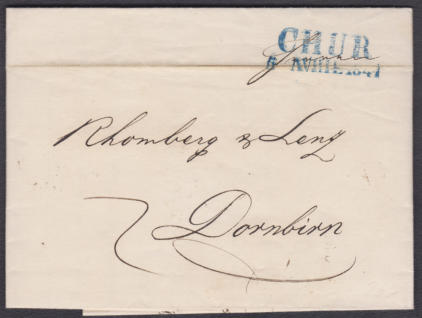 CHUR
6 AVRIL 1847
franco
Rhomberg & Lenz
Dornbirn